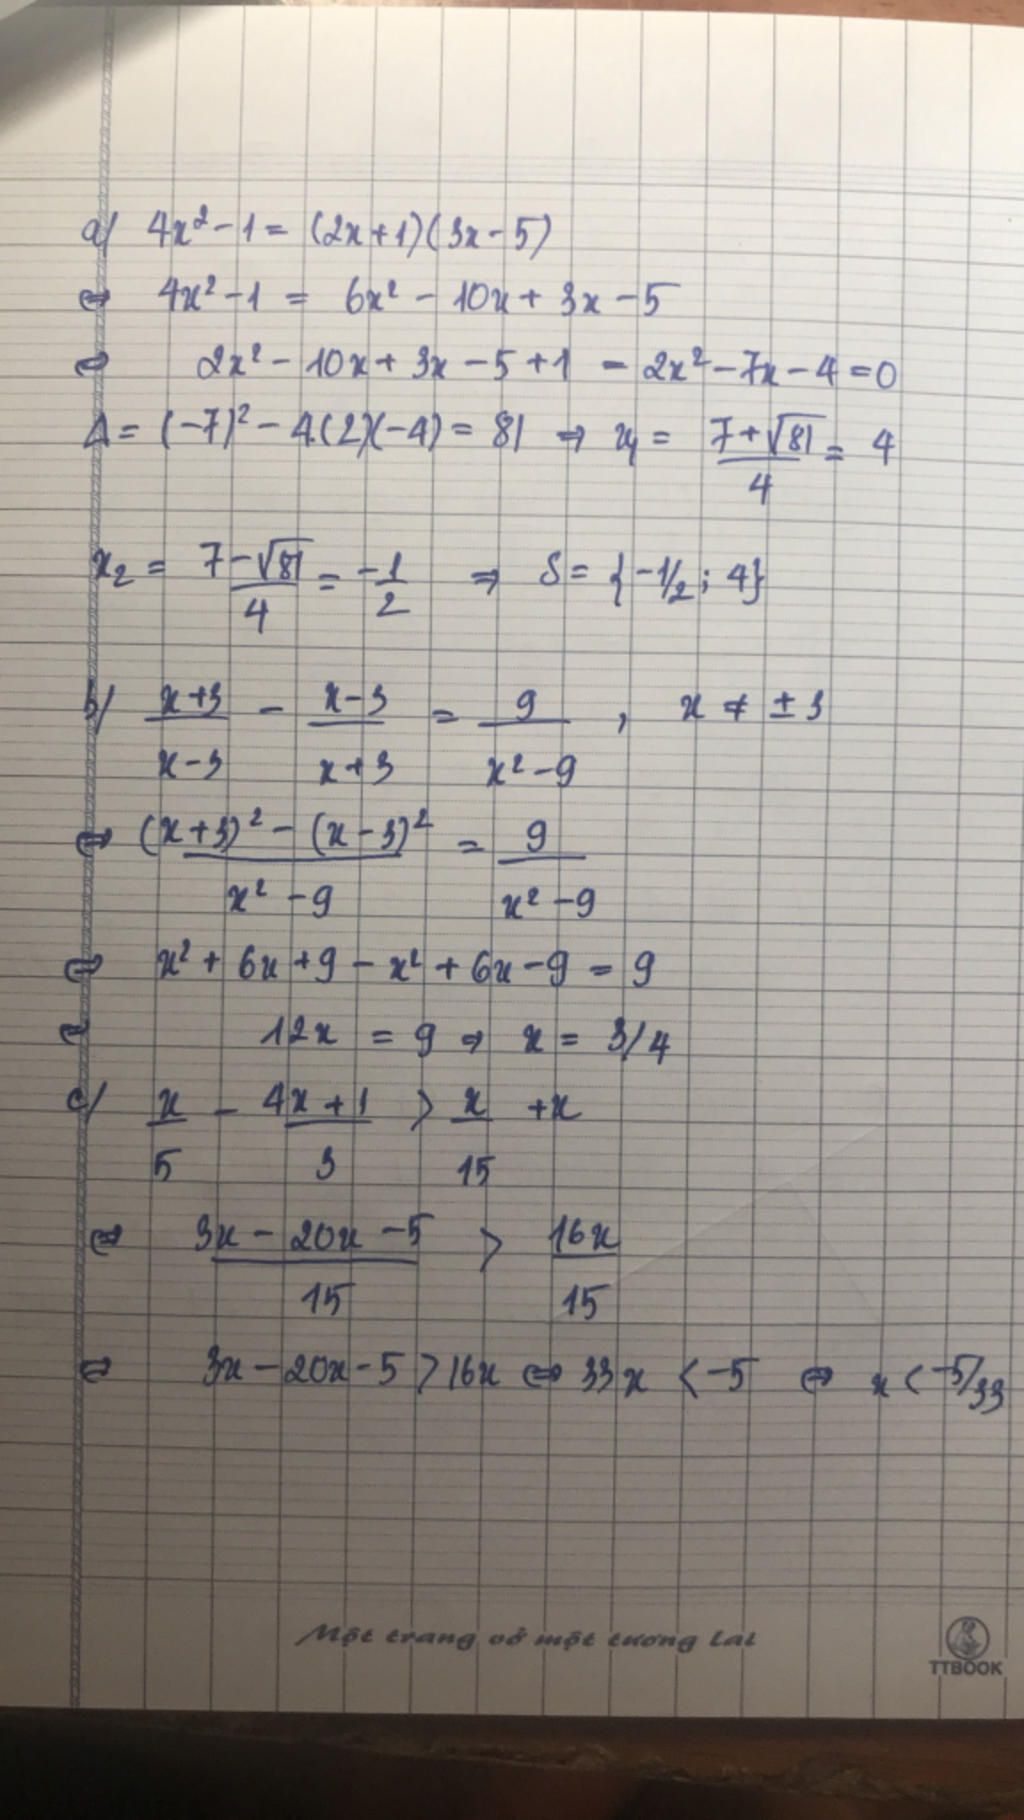 a/ 4x² - 1 = (2x+1)(3x-5)
⇔ 4x² - 1 = 6x² - 10x + 3x - 5
⇔ 2x² - 10x + 3x - 5 + 1 = 2x² - 7x - 4 = 0
Δ = (-7)² - 4.(2)(-4) = 81 ⇒ x₁ = (7+√81)/4 = 4
x₂ = (7-√81)/4 = -1/2 ⇒ S = {-1/2; 4}
b/ (x+3)/(x-3) - (x-3)/(x+3) = 9/(x²-9) , x ≠ ±3
⇔ ((x+3)² - (x-3)²)/(x²-9) = 9/(x²-9)
⇔ x² + 6x + 9 - x² + 6x - 9 = 9
⇔ 12x = 9 ⇒ x = 3/4
c/ x/5 - (4x+1)/3 > x/15 + x
⇔ (3x - 20x - 5)/15 > 16x/15
⇔ 3x - 20x - 5 > 16x ⇔ 33x < -5 ⇔ x < -5/33
Một trang vở một tương lai
TTBOOK